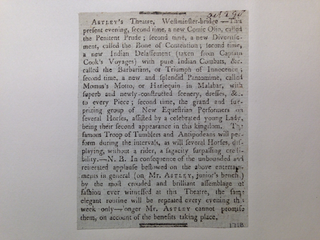 ASTLEY's Theatre, Westminster-bridge —The
present evening, second time, a new Comic Olio, called
the Penitent Prude; second time, a new Divertise-
ment, called the Zone of Contention; second time,
a new Indian Delassiment (taken from Captain
Cook's Voyages) with pure Indian Combats, &c.
called the Barbarian, or Triumph of Innocence;
second time, a new and splendid Pantomime, called
Momus's Motto, or Harlequin in Malabar, with
superb and newly-constructed scenery, dresses, &c.
to every Piece; second time, the grand and sur-
prizing group of New Equestrian Performers on
several Horses, assisted by a celebrated young Lady,
being their second appearance in this kingdom. The
famous Troop of Tumblers and Antipodeans will per-
form during the intervals, as will several Horses, dis-
playing, without a rider, a sagacity surpassing credi-
bility.—N. B. In consequence of the unbounded and
reiterated applause bestowed on the above entertain-
ments in general (on Mr. ASTLEY, junior's benefit)
by the most crouded and brilliant assemblage of
fashion ever witnessed at this Theatre, the same
elegant routine will be repeated every evening this
week only—longer Mr. ASTLEY cannot promise
them, on account of the benefits taking place.